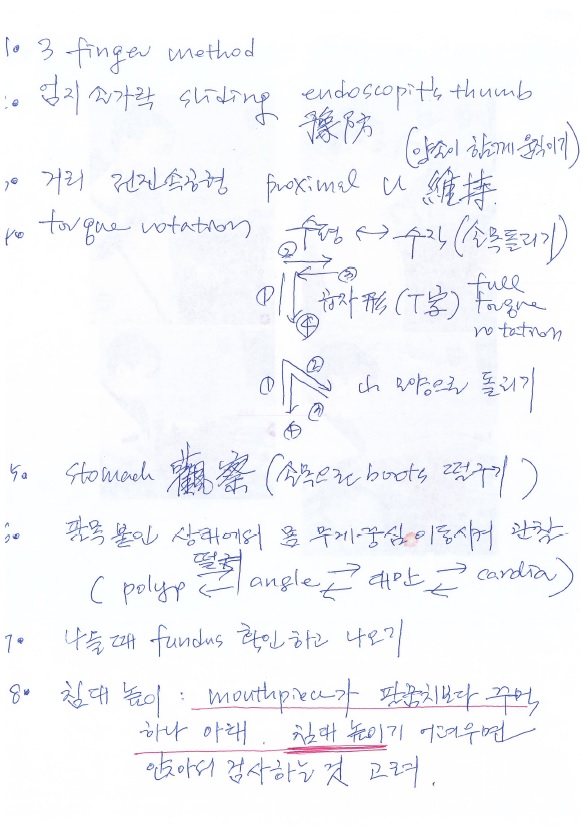 1. 3 finger method
2. 엄지 손가락 sliding endoscopit's thumb
豫防
(양손이 함께 움직이기)
3. 거리 전진속공형 proximal 내 維持
4. torque rotation 수평 ↔ 수직 (손목돌리기)
② ③
① ④ 字形 (T字) full
torque
rotation
② ① 내 모양으로 돌리기
③ ④
5. stomach 觀察 (손목으로 boots 떨구기)
6. 팔목 붙인 상태에서 몸 무게중심 이동시켜 관찰
떨궈
(polyp ← angle ⇄ 대만 ⇄ cardia)
7. 나올때 fundus 확인하고 나오기
8. 침대 높이 : mouthpiece가 팔꿈치보다 주먹
하나 아래. 침대 높이기 어려우면
앉아서 검사하는 것 고려.